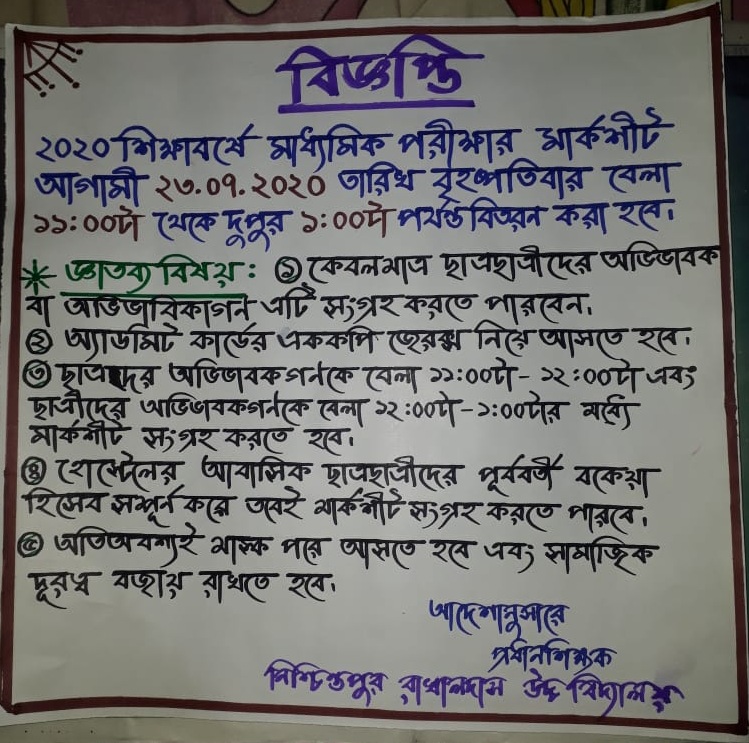 বিজ্ঞপ্তি
২০২০ শিক্ষাবর্ষে মাধ্যমিক পরীক্ষার মার্কশীট
আগামী ২৩.০৭.২০২০ তারিখ বৃহস্পতিবার বেলা
১১:০০টা থেকে দুপুর ১:০০টা পর্যন্ত বিতরন করা হবে।
* জ্ঞাতব্য বিষয় : ① কেবলমাত্র ছাত্রছাত্রীদের অভিভাবক
বা অভিভাবিকাগন এটি সংগ্রহ করতে পারবেন।
② অ্যাডমিট কার্ডের এককপি জেরক্স নিয়ে আসতে হবে।
③ ছাত্রদের অভিভাবকগনকে বেলা ১১:০০টা - ১২:০০টা এবং
ছাত্রীদের অভিভাবকগনকে বেলা ১২:০০টা - ১:০০টার মধ্যে
মার্কশীট সংগ্রহ করতে হবে।
④ হোস্টেলের আবাসিক ছাত্রছাত্রীদের পূর্ববর্তী বকেয়া
হিসেব সম্পূর্ন করে তবেই মার্কশীট সংগ্রহ করতে পারবে।
⑤ অতিঅবশ্যই মাস্ক পরে আসতে হবে এবং সামাজিক
দূরত্ব বজায় রাখতে হবে।
আদেশানুসারে
প্রধানশিক্ষক
নিশ্চিন্তপুর রাখালদাস উচ্চ বিদ্যালয়